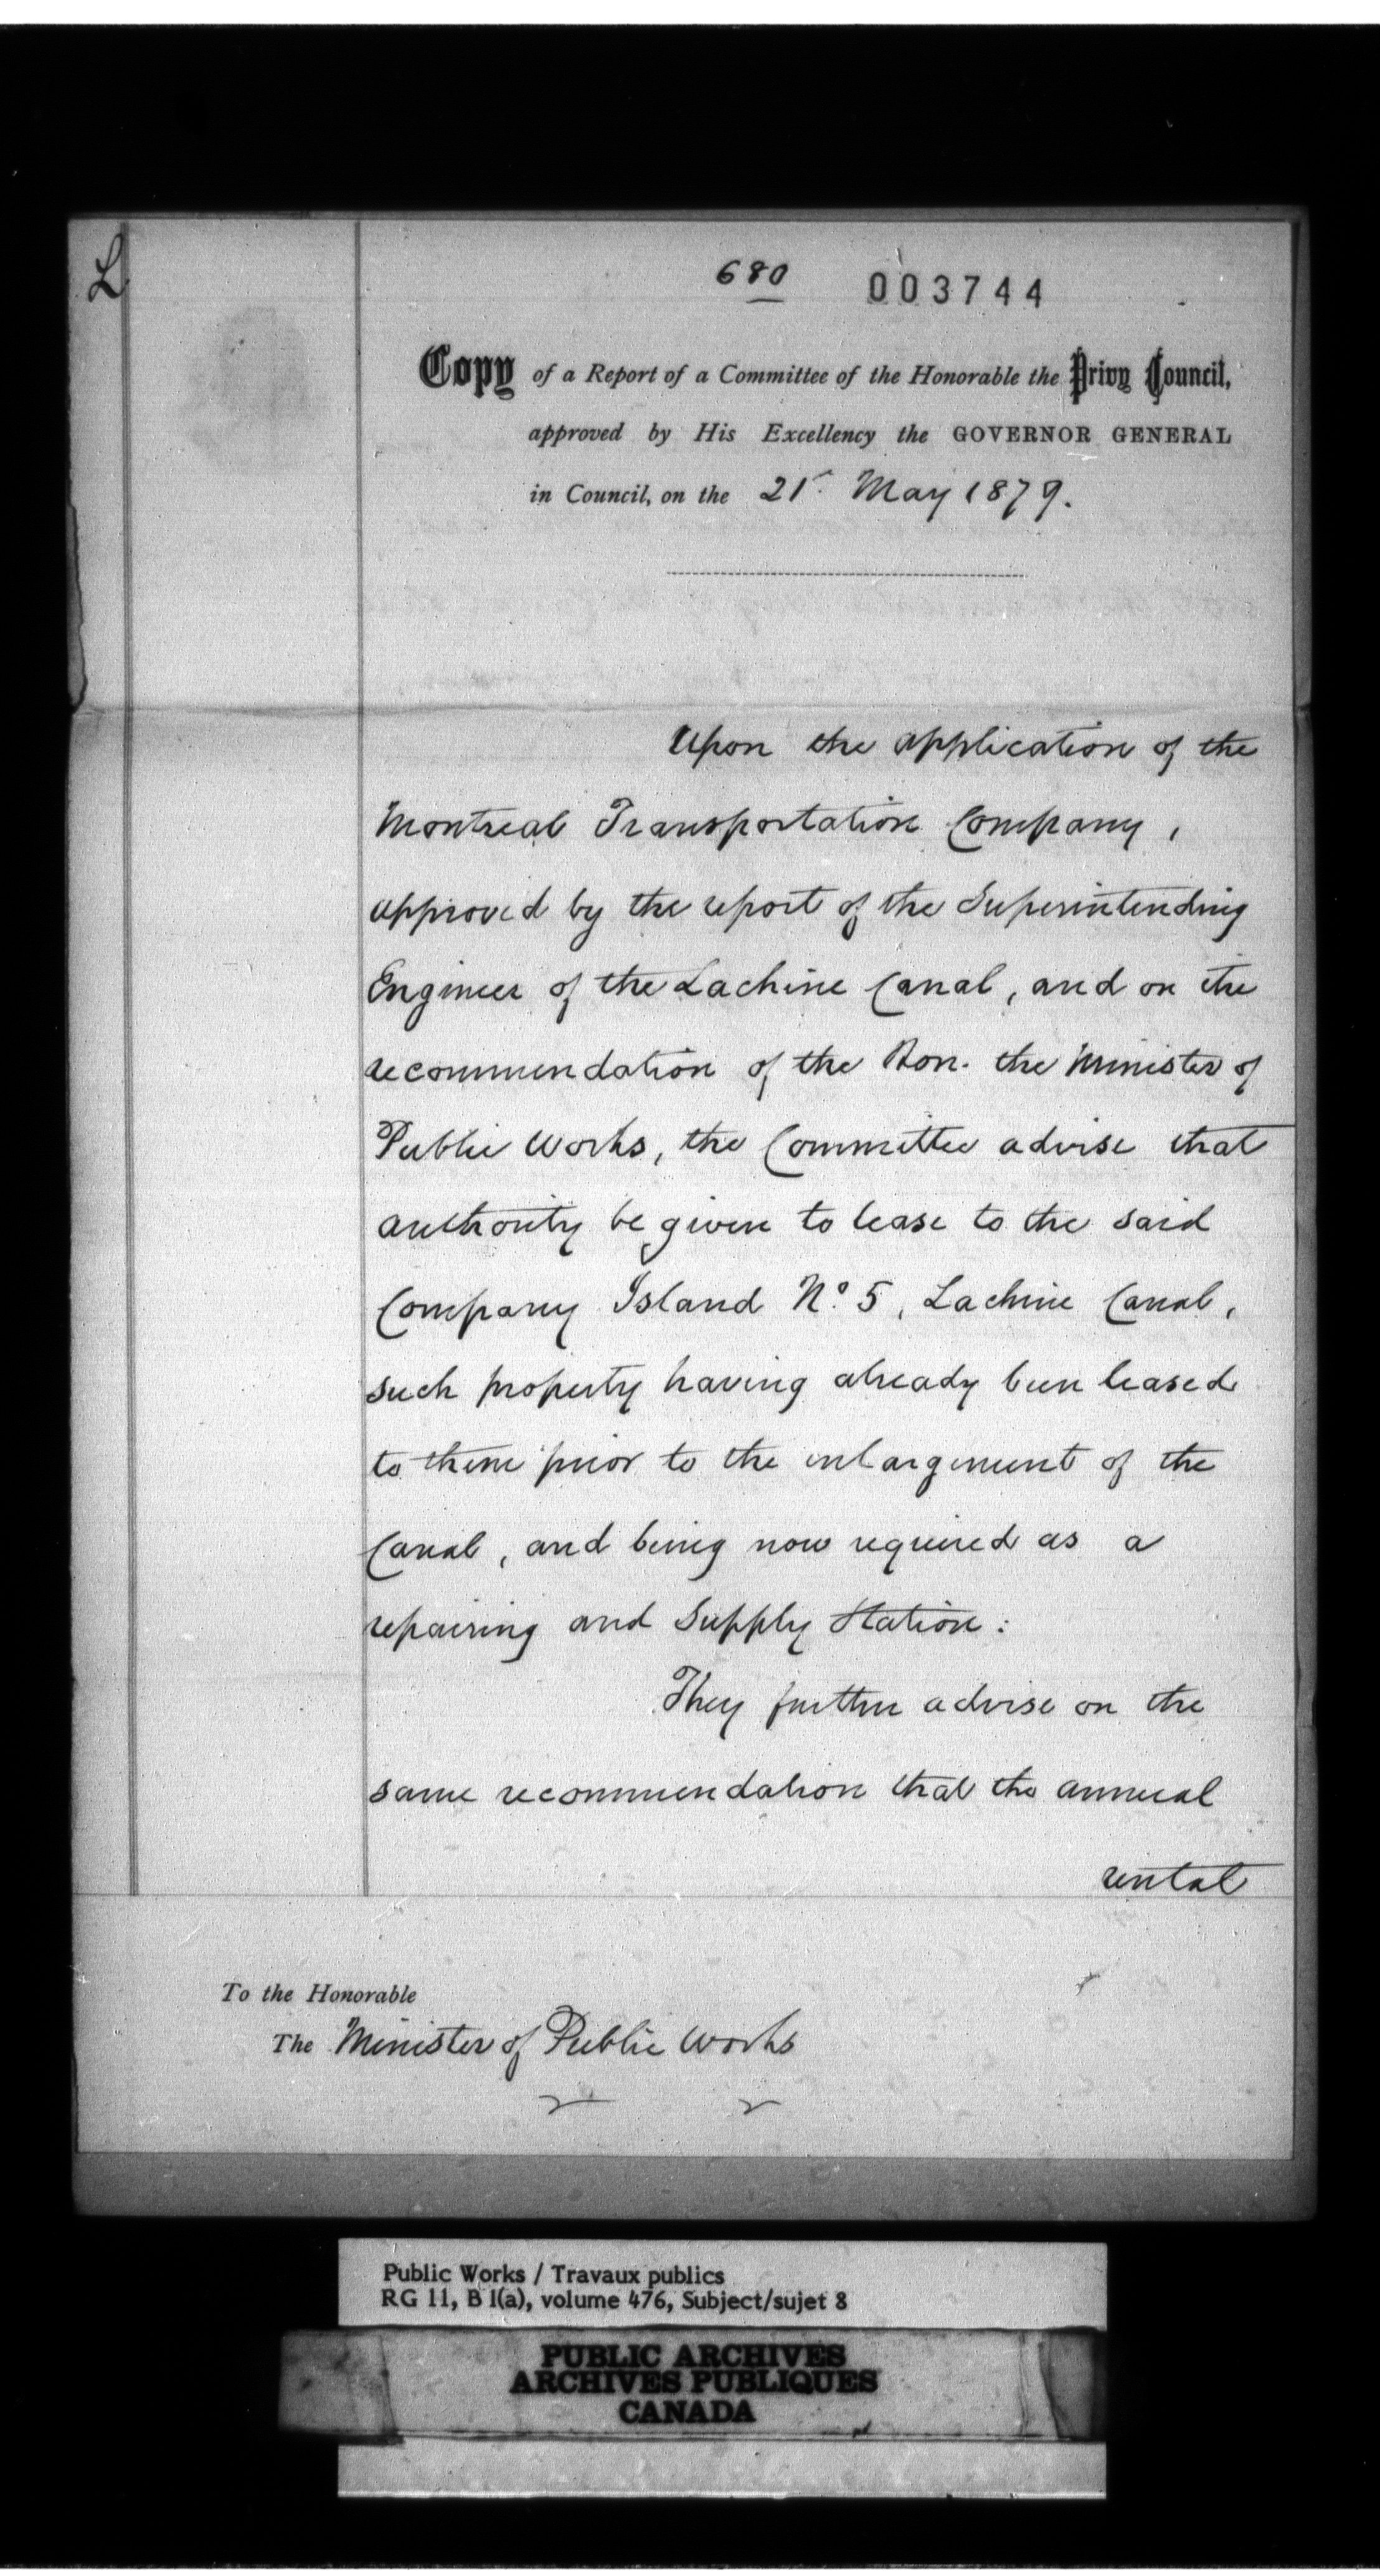 L
680
003744
Copy of a Report of a Committee of the Honorable the Privy Council,
approved by His Excellency the GOVERNOR GENERAL
in Council, on the 21st May 1879.
Upon the application of the
Montreal Transportation Company,
approved by the report of the Superintending
Engineer of the Lachine Canal, and on the
recommendation of the Hon. the Minister of
Public Works, the Committee advise that
authority be given to lease to the said
Company Island No. 5, Lachine Canal,
such property having already been leased
to them prior to the enlargement of the
Canal, and being now required as a
repairing and Supply Station:
They further advise on the
same recommendation that the annual
rental
To the Honorable
The Minister of Public Works
Public Works / Travaux publics
RG 11, B 1(a), volume 476, Subject/sujet 8
PUBLIC ARCHIVES
ARCHIVES PUBLIQUES
CANADA